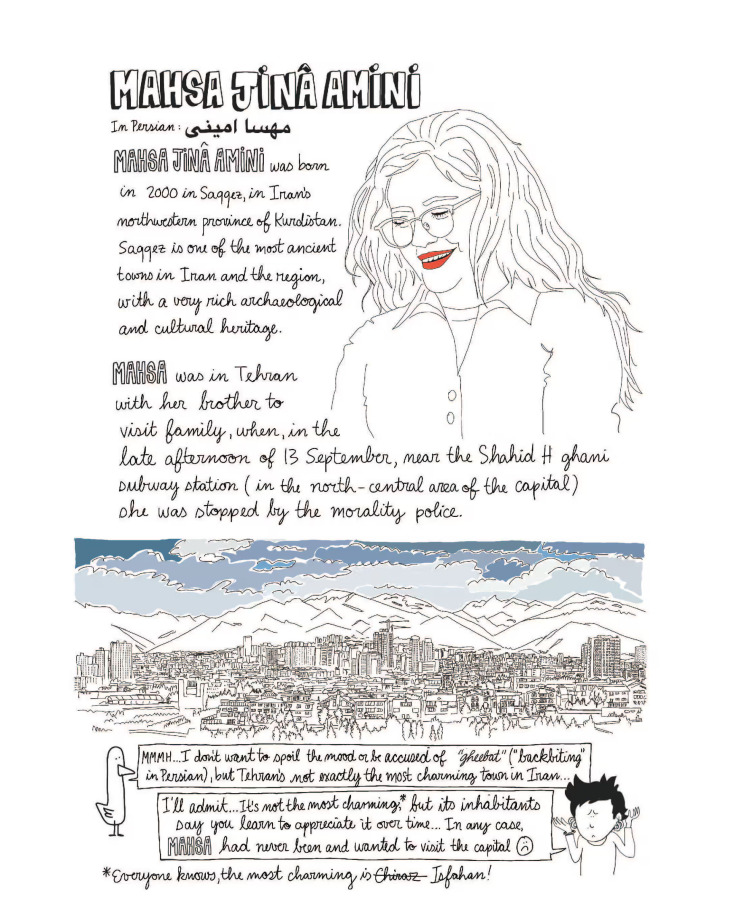 MAHSA JINÂ AMINI
In Persian: مهسا امینی
MAHSA JINÂ AMINI was born
in 2000 in Saqqez, in Iran's
northwestern province of Kurdistan.
Saqqez is one of the most ancient
towns in Iran and the region,
with a very rich archaeological
and cultural heritage.
MAHSA was in Tehran
with her brother to
visit family, when, in the
late afternoon of 13 September, near the Shahid H ghani
subway station (in the north-central area of the capital)
she was stopped by the morality police.
MMMH...I don't want to spoil the mood or be accused of "gheebat" ("backbiting"
in Persian), but Tehran's not exactly the most charming town in Iran...
I'll admit...It's not the most charming,* but its inhabitants
say you learn to appreciate it over time... In any case,
MAHSA had never been and wanted to visit the capital ☹
*Everyone knows, the most charming is Chiraz Isfahan!